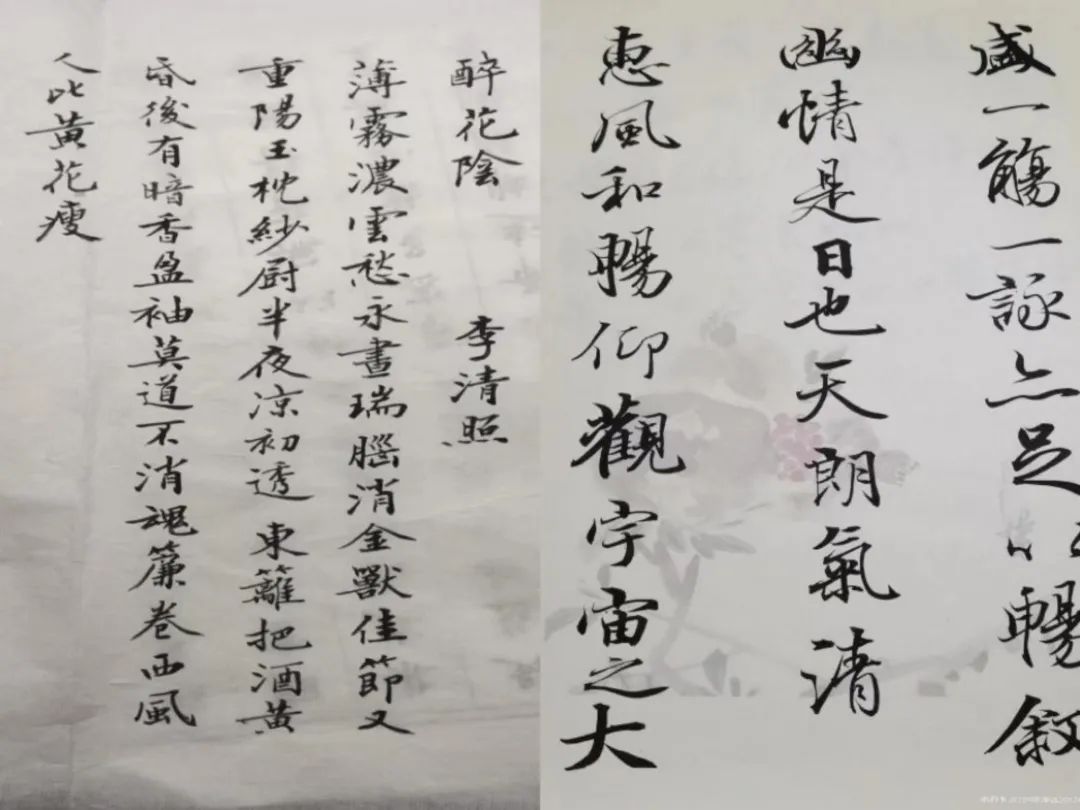 醉花陰 李清照
薄霧濃雲愁永晝瑞腦消金獸佳節又
重陽玉枕紗厨半夜凉初透東籬把酒黃
昏後有暗香盈袖莫道不消魂簾卷西風
人比黃花瘦
盛一觴一詠亦足以暢叙
幽情是日也天朗氣清
惠風和暢仰觀宇宙之大